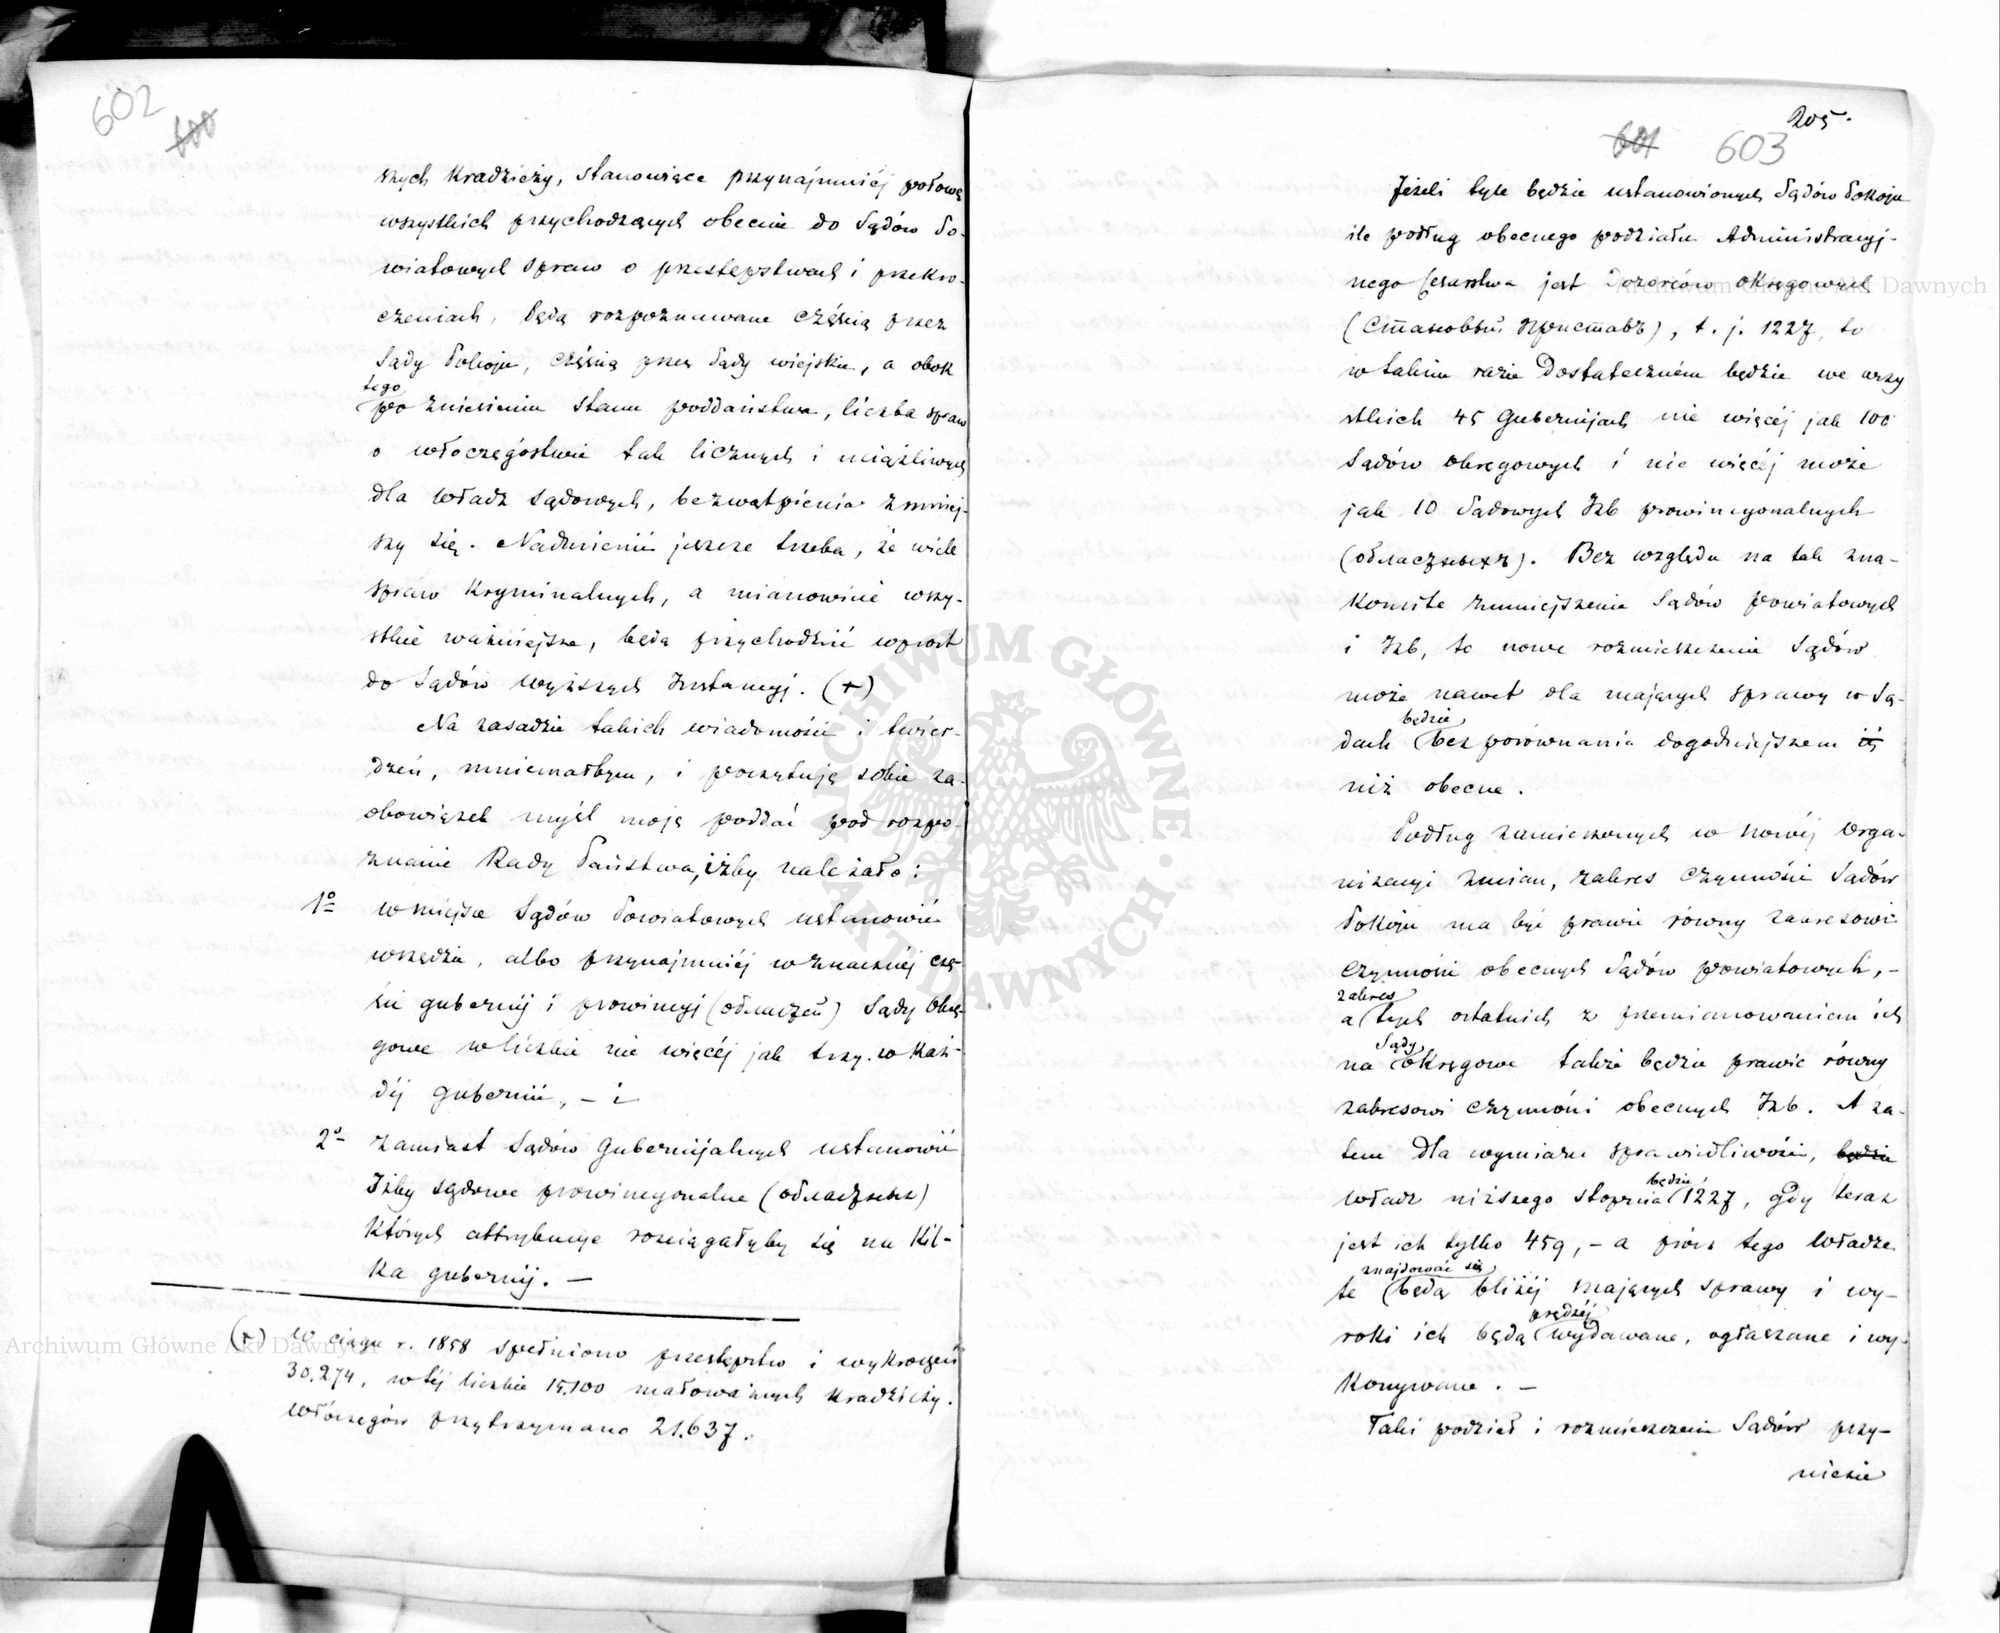 602
600
szych Kradzieży, stanowiące przynajmniéj połowę
wszystkich przychodzących obecnie do Sądów Po-
wiatowych spraw o przestępstwach i przekro-
czeniach, będą rozpoznawane częścią przez
Sądy Pokoju, częścią przez Sądy wiejskie, a obok
tego
po zniesieniu stanu poddaństwa, liczba spraw
o włóczęgostwie tak licznych i uciążliwych
dla Władz Sądowych, bezwątpienia zmniej-
szy się. Nadmienić jeszcze trzeba, że wiele
spraw Kryminalnych, a mianowicie wszy-
stkie ważniejsze, będą przychodzić wprost
do Sądów wyższych Instancyj. (+)
Na zasadzie takich wiadomości i twier-
dzeń, mniemałbym, i poczytuję sobie za
obowiązek myśl moję poddać pod rozpo-
znanie Rady Państwa, iżby należało:
1º w miejsce Sądów Powiatowych ustanowić
wszędzie, albo przynajmniéj w znacznéj czę-
ści gubernij i prowincyj (областей) Sądy Okrę-
gowe w liczbie nie więcéj jak trzy w Każ-
déj gubernii, – i
2º zamiast Sądów Gubernijalnych ustanowić
Izby sądowe prowincyonalne (областныя)
Których attrybucye rozciągałyby się na Kil-
Ka gubernij. —
(+) W ciągu r. 1858 spełniono przestępstw i wykroczeń
30.274, w téj liczbie 15.100 małoważnych Kradzieży.
Włóczęgów przytrzymano 21.637.
205.
601 603
Jeżeli tyle będzie ustanowionych Sądów Pokoju
ile podług obecnego podziału Administracyj-
nego Cesarstwa jest Dozorców okręgowych
(Становый Приставъ), t. j. 1227, to
w takim razie Dostateczném będzie we wszy
stkich 45 Gubernijach nie więcéj jak 100
Sądów okręgowych i nie więcéj może
jak 10 Sądowych Izb prowincyonalnych
(областныхъ). Bez względu na tak zna-
Komite zmniejszenie Sądów powiatowych
i Izb, to nowe rozmieszczenie Sądów
może nawet dla mających sprawy w Są-
będzie
dach bez porównania dogodniejszem iż
niż obecne.
Podług zamieszczonych w nowéj Orga-
nizacyi zmian, zakres czynności Sądów
Pokoju ma być prawie równy zakresowi
czynności obecnych Sądów powiatowych, –
zakres
a tych ostatnich z przemianowaniem ich
Sądy
na okręgowe także będzie prawie równy
zakresowi czynności obecnych Izb. A za-
tem dla wymiaru sprawiedliwości, będzie
będzie
władz niższego stopnia 1227, gdy teraz
jest ich tylko 459, – a prócz tego Władze
znajdować się
te będą bliżéj mających sprawy i wy-
prędzéj
roki ich będą wydawane, ogłaszane i wy-
Konywane. –
Taki podział i rozmieszczenie Sądów przy-
niesie
Archiwum Główne Akt Dawnych
Archiwum Główne Akt Dawnych
ARCHIWUM GŁÓWNE AKT DAWNYCH